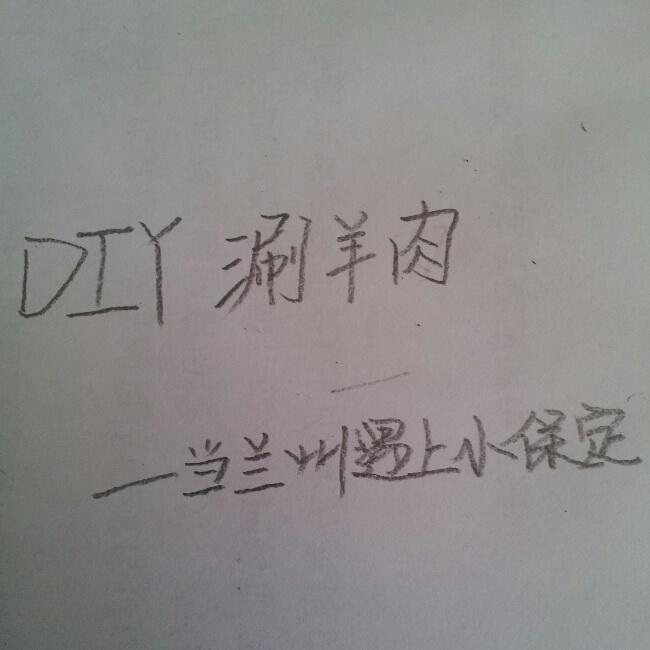 DIY 涮羊肉
—当兰州遇上小保定